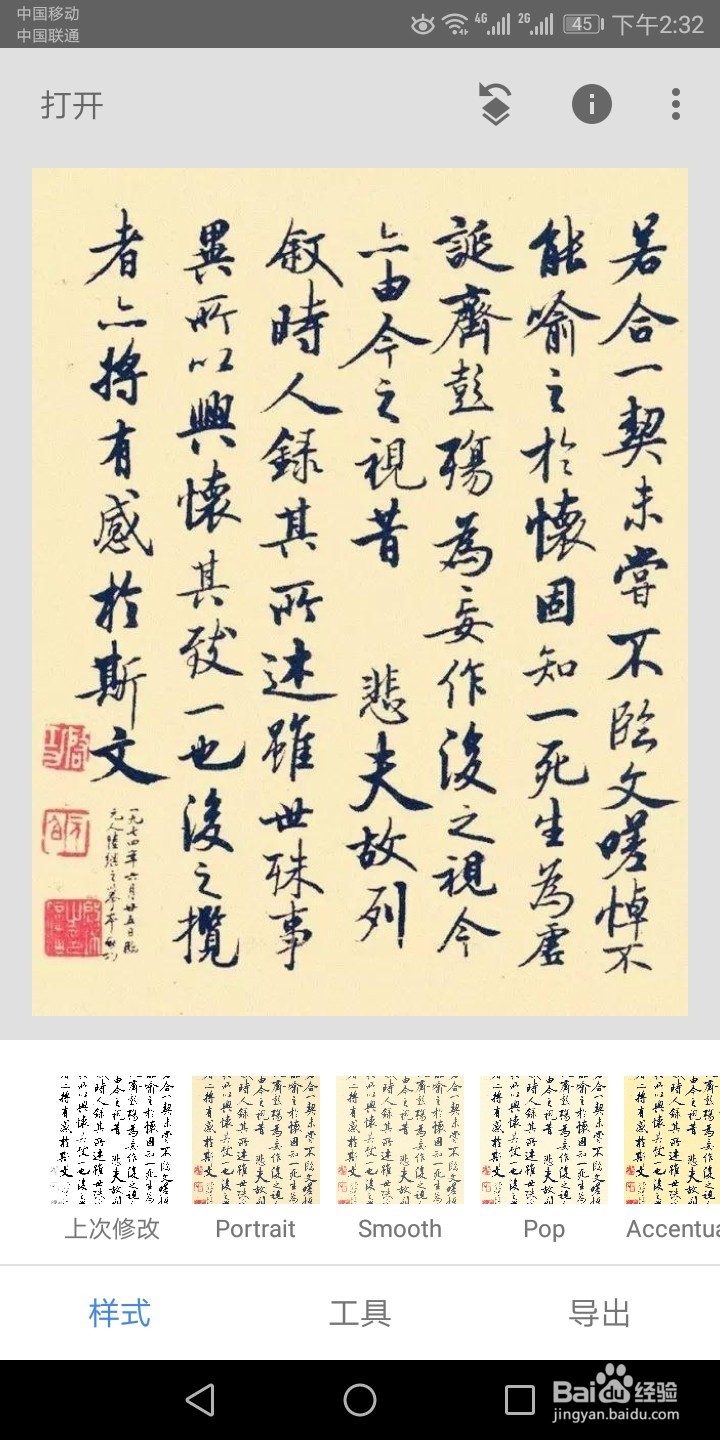 中国移动
中国联通
4G
2G
45
下午2:32
打开
若合一契未嘗不臨文嗟悼不
能喻之於懷固知一死生為虛
誕齊彭殤為妄作後之視今
亦由今之視昔 悲夫故列
敘時人錄其所述雖世殊事
異所以興懷其致一也後之攬
者亦將有感於斯文
一九七四年六月廿五日臨
上次修改
Portrait
Smooth
Pop
Accentua
样式
工具
导出
Baidu经验
jingyan.baidu.com